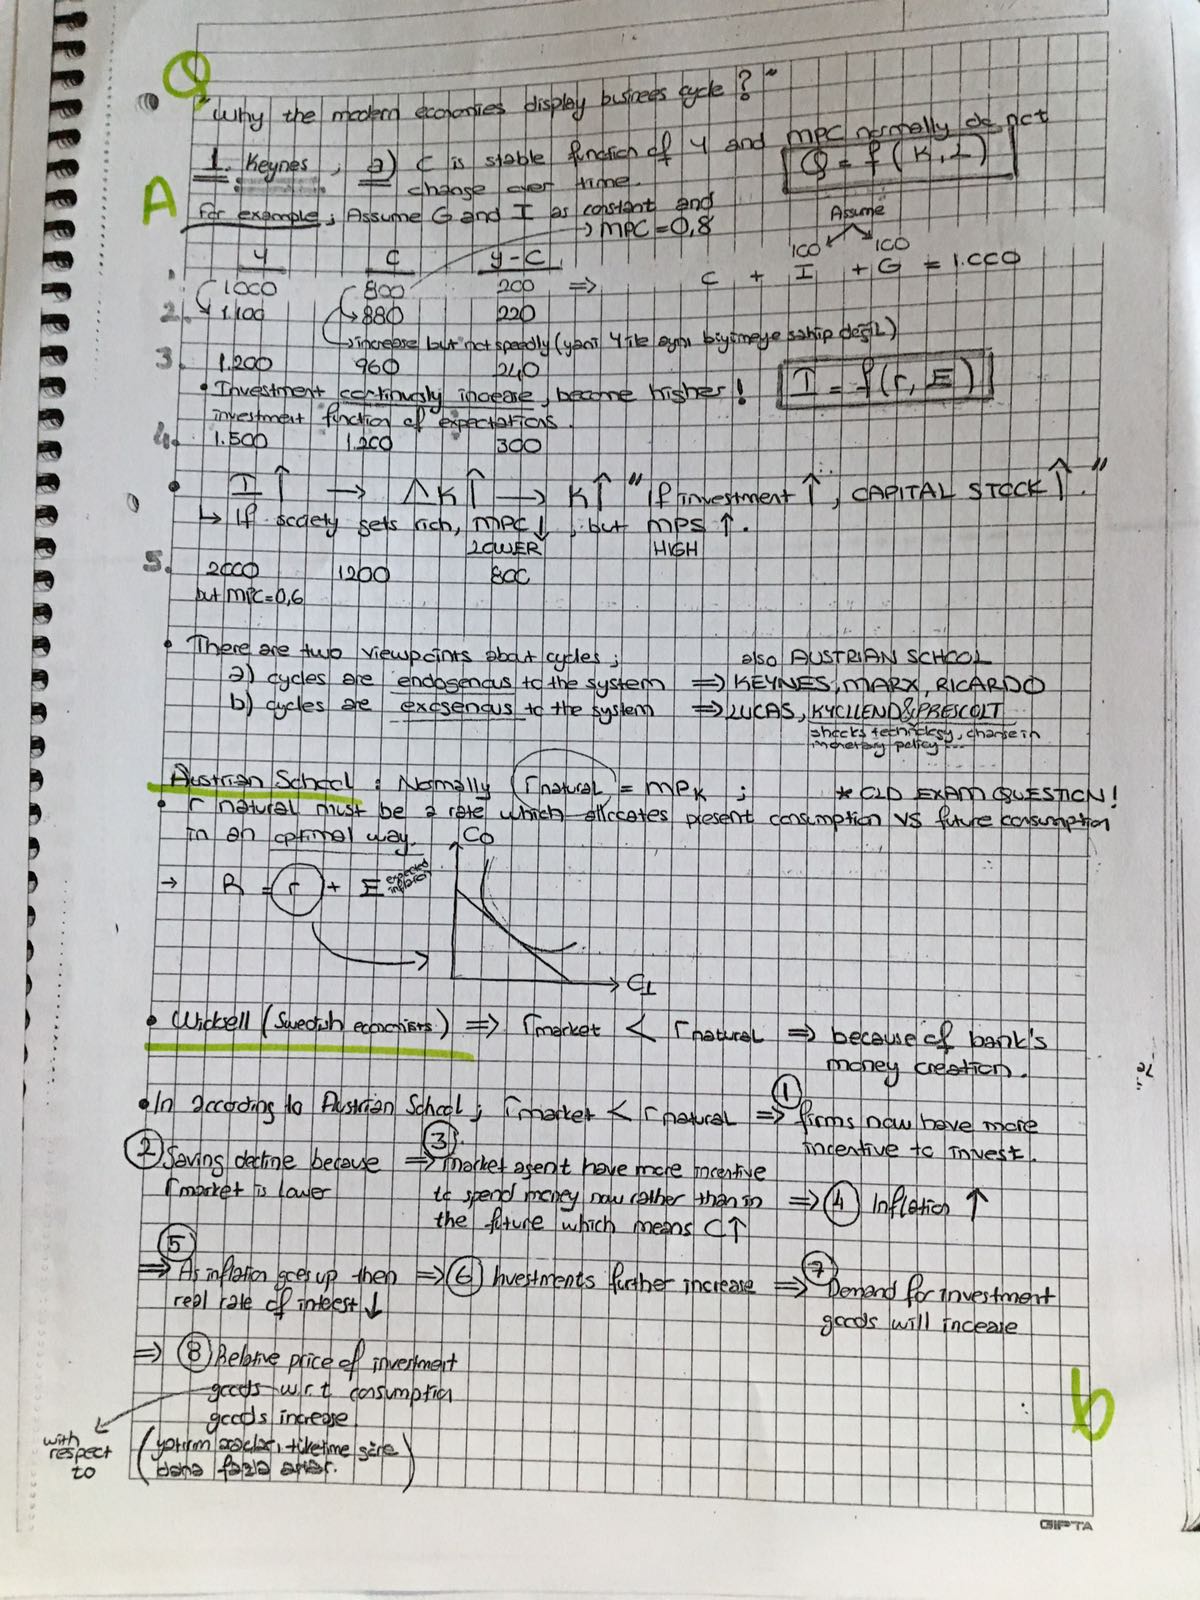 Q
"Why the modern economies display business cycle?"
1. Keynes ; a) C is stable function of Y and MPC normally do not
change over time.
Q = f(K, L)
A
For example ; Assume G and I as constant and
→ MPC = 0,8
Assume
Y C Y-C
100 100
1. 1000 800 200 ⇒ C + I + G = 1.000
2. 1.100 880 220
→ increase but not speedly (yani Y ile aynı büyümeye sahip değil)
3. 1.200 960 240
• Investment continously increase, become higher!
I = f(r, E)
investment function of expectations.
4. 1.500 1.200 300
• I ↑ → ΔK ↑ → K ↑ "If investment ↑, CAPITAL STOCK ↑."
↳ If society gets rich, MPC ↓ , but MPS ↑.
LOWER HIGH
5. 2000 1200 800
but MPC=0,6
• There are two viewpoints about cycles ; also AUSTRIAN SCHOOL
a) cycles are endogenous to the system ⇒ KEYNES, MARX, RICARDO
b) cycles are exogenous to the system ⇒ LUCAS, KYCLLEND & PRESCOLT
shocks technology, change in
monetary policy...
Austrian School : Normally r natural = MPK ; * OLD EXAM QUESTION!
• r natural must be a rate which allocates present consumption VS future consumption
in an optimal way.
C0
→ R = r + E expected inflation
C1
• Wicksell (Swedish economists) ⇒ r market < r natural ⇒ because of bank's
money creation.
• In according to Austrian School ; r market < r natural ⇒ 1 firms now have more
incentive to invest.
2 Saving decline because ⇒ 3 market agent have more incentive
r market is lower to spend money now rather than in ⇒ 4 Inflation ↑
the future which means C↑
⇒ 5 As inflation goes up then ⇒ 6 Investments further increase ⇒ 7 Demand for investment
real rate of interest ↓ goods will incease
⇒ 8 Relative price of investment
goods w.r.t consumption
goods increase
with
respect
to
(yatırım araçları, tüketime göre
daha fazla artar.)
b
GIPTA